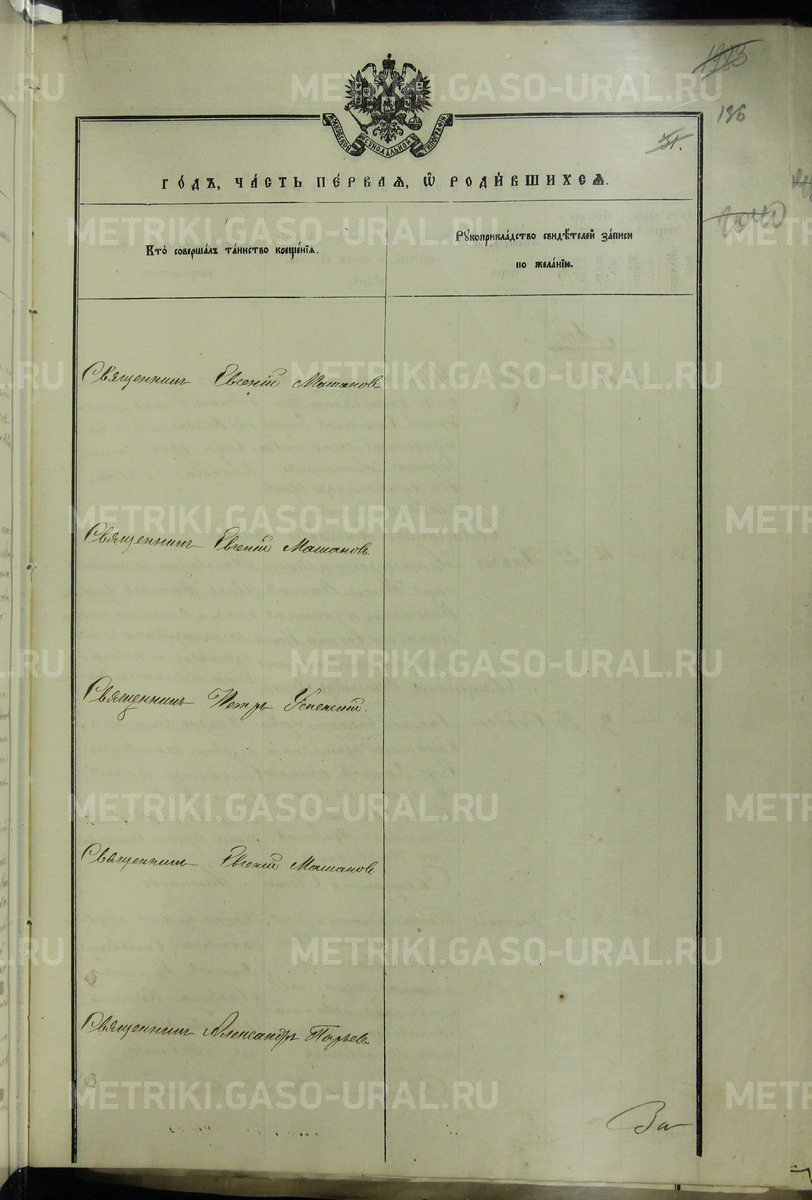 186
МОСКОВСКОЙ СѴНОДАЛЬНОЙ ТИПОГРАФІИ
31.
ГО́ДЪ, ЧА́СТЬ ПЕ́РВАѦ, Ѽ РОДИ́ВШИХСѦ.
Кто̀ соверша́лъ та́инство креще́нїѧ.
Рꙋкоприкла́дство свидѣ́телей за́писи
по жела́нїю.
Священникъ Евгеній Машановъ
Священникъ Евгеній Машановъ
Священникъ Петръ Успенскій.
Священникъ Евгеній Машановъ
Священникъ Александръ
За
METRIKI.GASO-URAL.RU